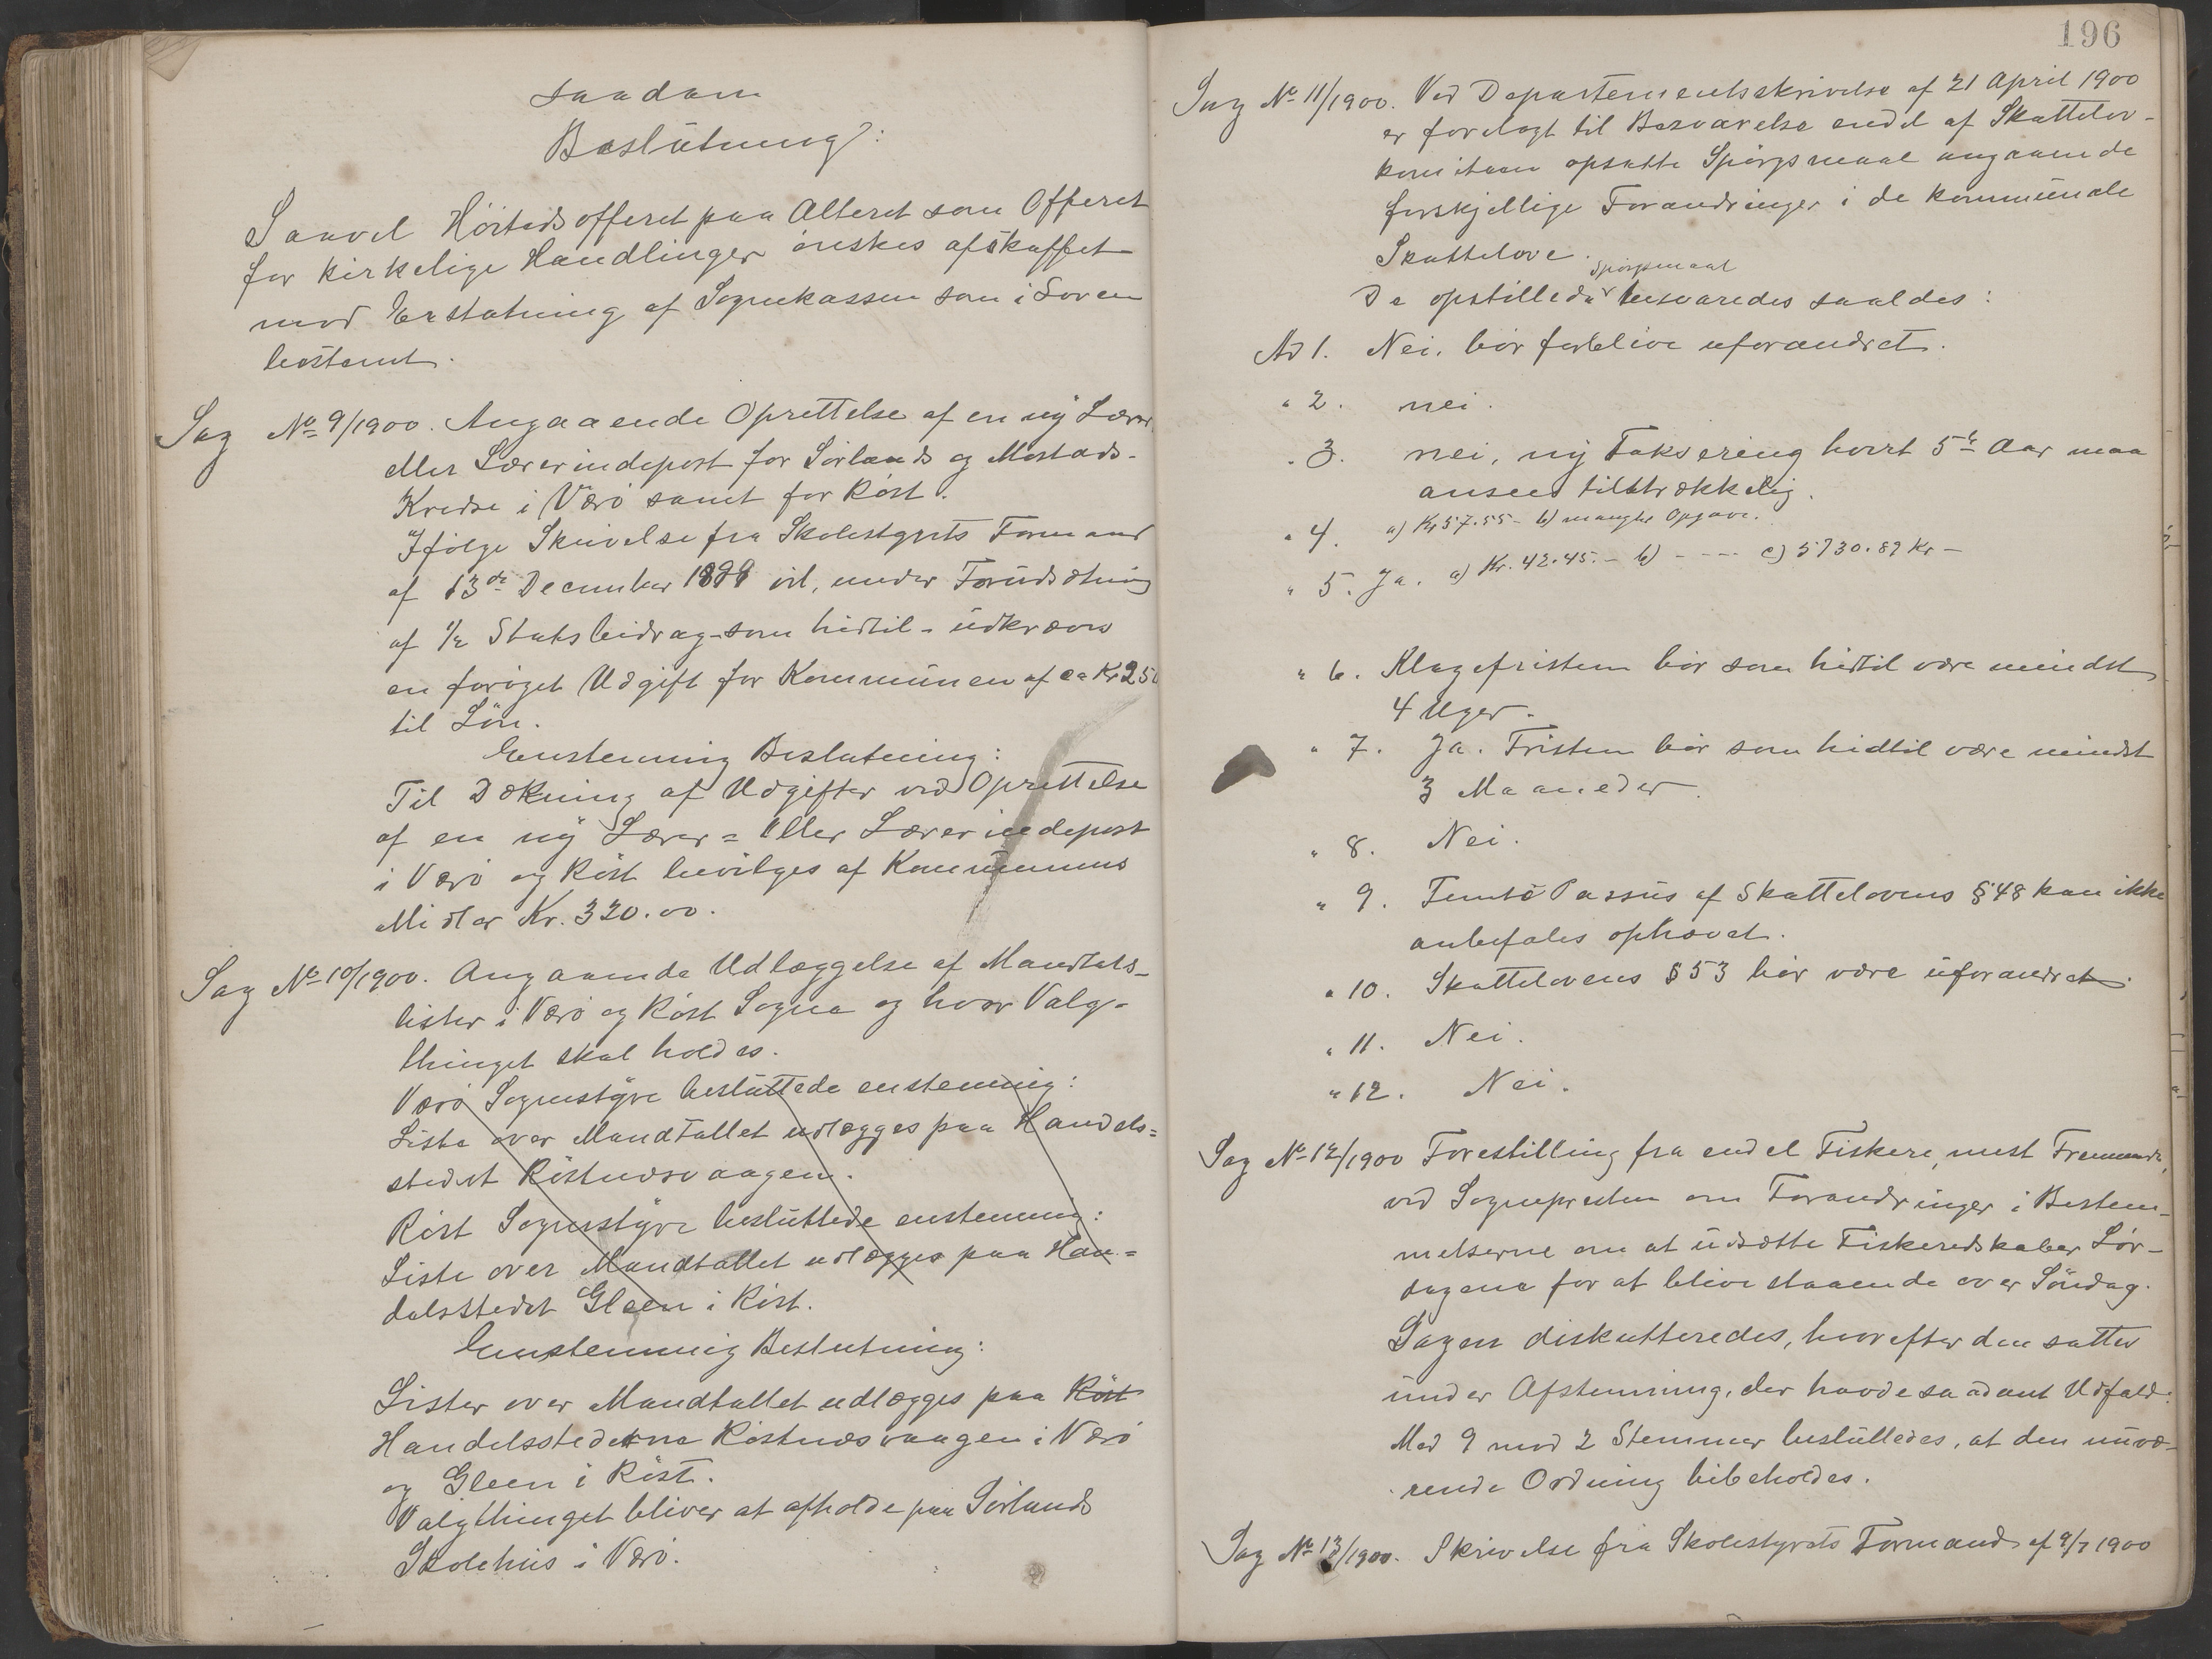 saadan
Beslutning:
Saavel Höitidsofferet paa Alteret som Offeret
for kirkelige Handlinger önskes afskaffet
mod Erstatning af Sognekassen som i Loven
bestemt.
Sag No 9/1900. Angaaende Oprettelse af en ny Lærer
eller Lærerindepost for Sörlands og Mostads-
Kredse i Værö samt for Röst.
Ifölge Skrivelse fra Skolestyrets Formand
af 13de December 1899 vil, under Forudsætning
af 1/2 Statsbidrag - som hidtil - udkræves
en foröget Udgift for Kommunen af ca Kr 250
til Lön.
Enstemmig Beslutning:
Til Dækning af Udgifter ved Oprettelse
af en ny Lærer= eller Lærerindepost
i Værö og Röst bevilges af Kommunens
Midler Kr. 320.00.
Sag No 10/1900. Angaaende Udlæggelse af Mandtals-
lister i Værö og Röst Sogne og hvor Valg-
thinget skal holdes.
Værö Sognestyre besluttede enstemmig:
Liste over Mandtallet udlægges paa Handels=
stedet Röstnæsvaagen.
Röst Sognestyre besluttede enstemmig:
Liste over Mandtallet udlægges paa Han=
delsstedet Gleen i Röst.
Enstemmig Beslutning:
Lister over Mandtallet udlægges paa Röst
Handelsstederne Röstnæsvaagen i Værö
og Gleen i Röst.
Valgthinget bliver at afholde paa Sörlands
Skolehus i Værö.
196
Sag No 11/1900. Ved Departementsskrivelse af 21 April 1900
er forelagt til Besvarelse endel af Skattelov-
komiteen opsatte Spörgsmaal angaaende
forskjellige Forandringer i de kommunale
Skattelove.
Spörgsmaal
De opstillede besvaredes saaledes:
Ad 1. Nei, bör forblive uforandret.
" 2. nei.
" 3. nei, ny Taksering hvert 5te Aar maa
ansees tilstrækkelig.
" 4. a) Kr 57.55 - b) mangler Opgave.
" 5. Ja. a) Kr. 42.45. - b) - - - - c) 5730.89 Kr -
" 6. Klagefristen bör som hidtil være mindst
4 Uger.
" 7. Ja. Fristen bör som hidtil være mindst
3 Maaneder.
" 8. Nei.
" 9. Femte Passus af Skattelovens § 48 kan ikke
anbefales ophævet.
" 10. Skattelovens § 53 bör være uforandret.
" 11. Nei.
" 12. Nei.
Sag No 12/1900 Forestilling fra endel Fiskere, mest Fremmede,
ved Sognepresten om Forandringer i Bestem-
melserne om at udsætte Fiskeredskaber Lör-
dagene for at blive staaende over Söndag.
Sagen diskutteredes, hvorefter den sattes
under Afstemning, der havde saadant Udfald:
Med 9 mod 2 Stemmer besluttedes, at den nuvæ-
rende Ordning bibeholdes.
Sag No 13/1900. Skrivelse fra Skolestyrets Formand af 9/7 1900